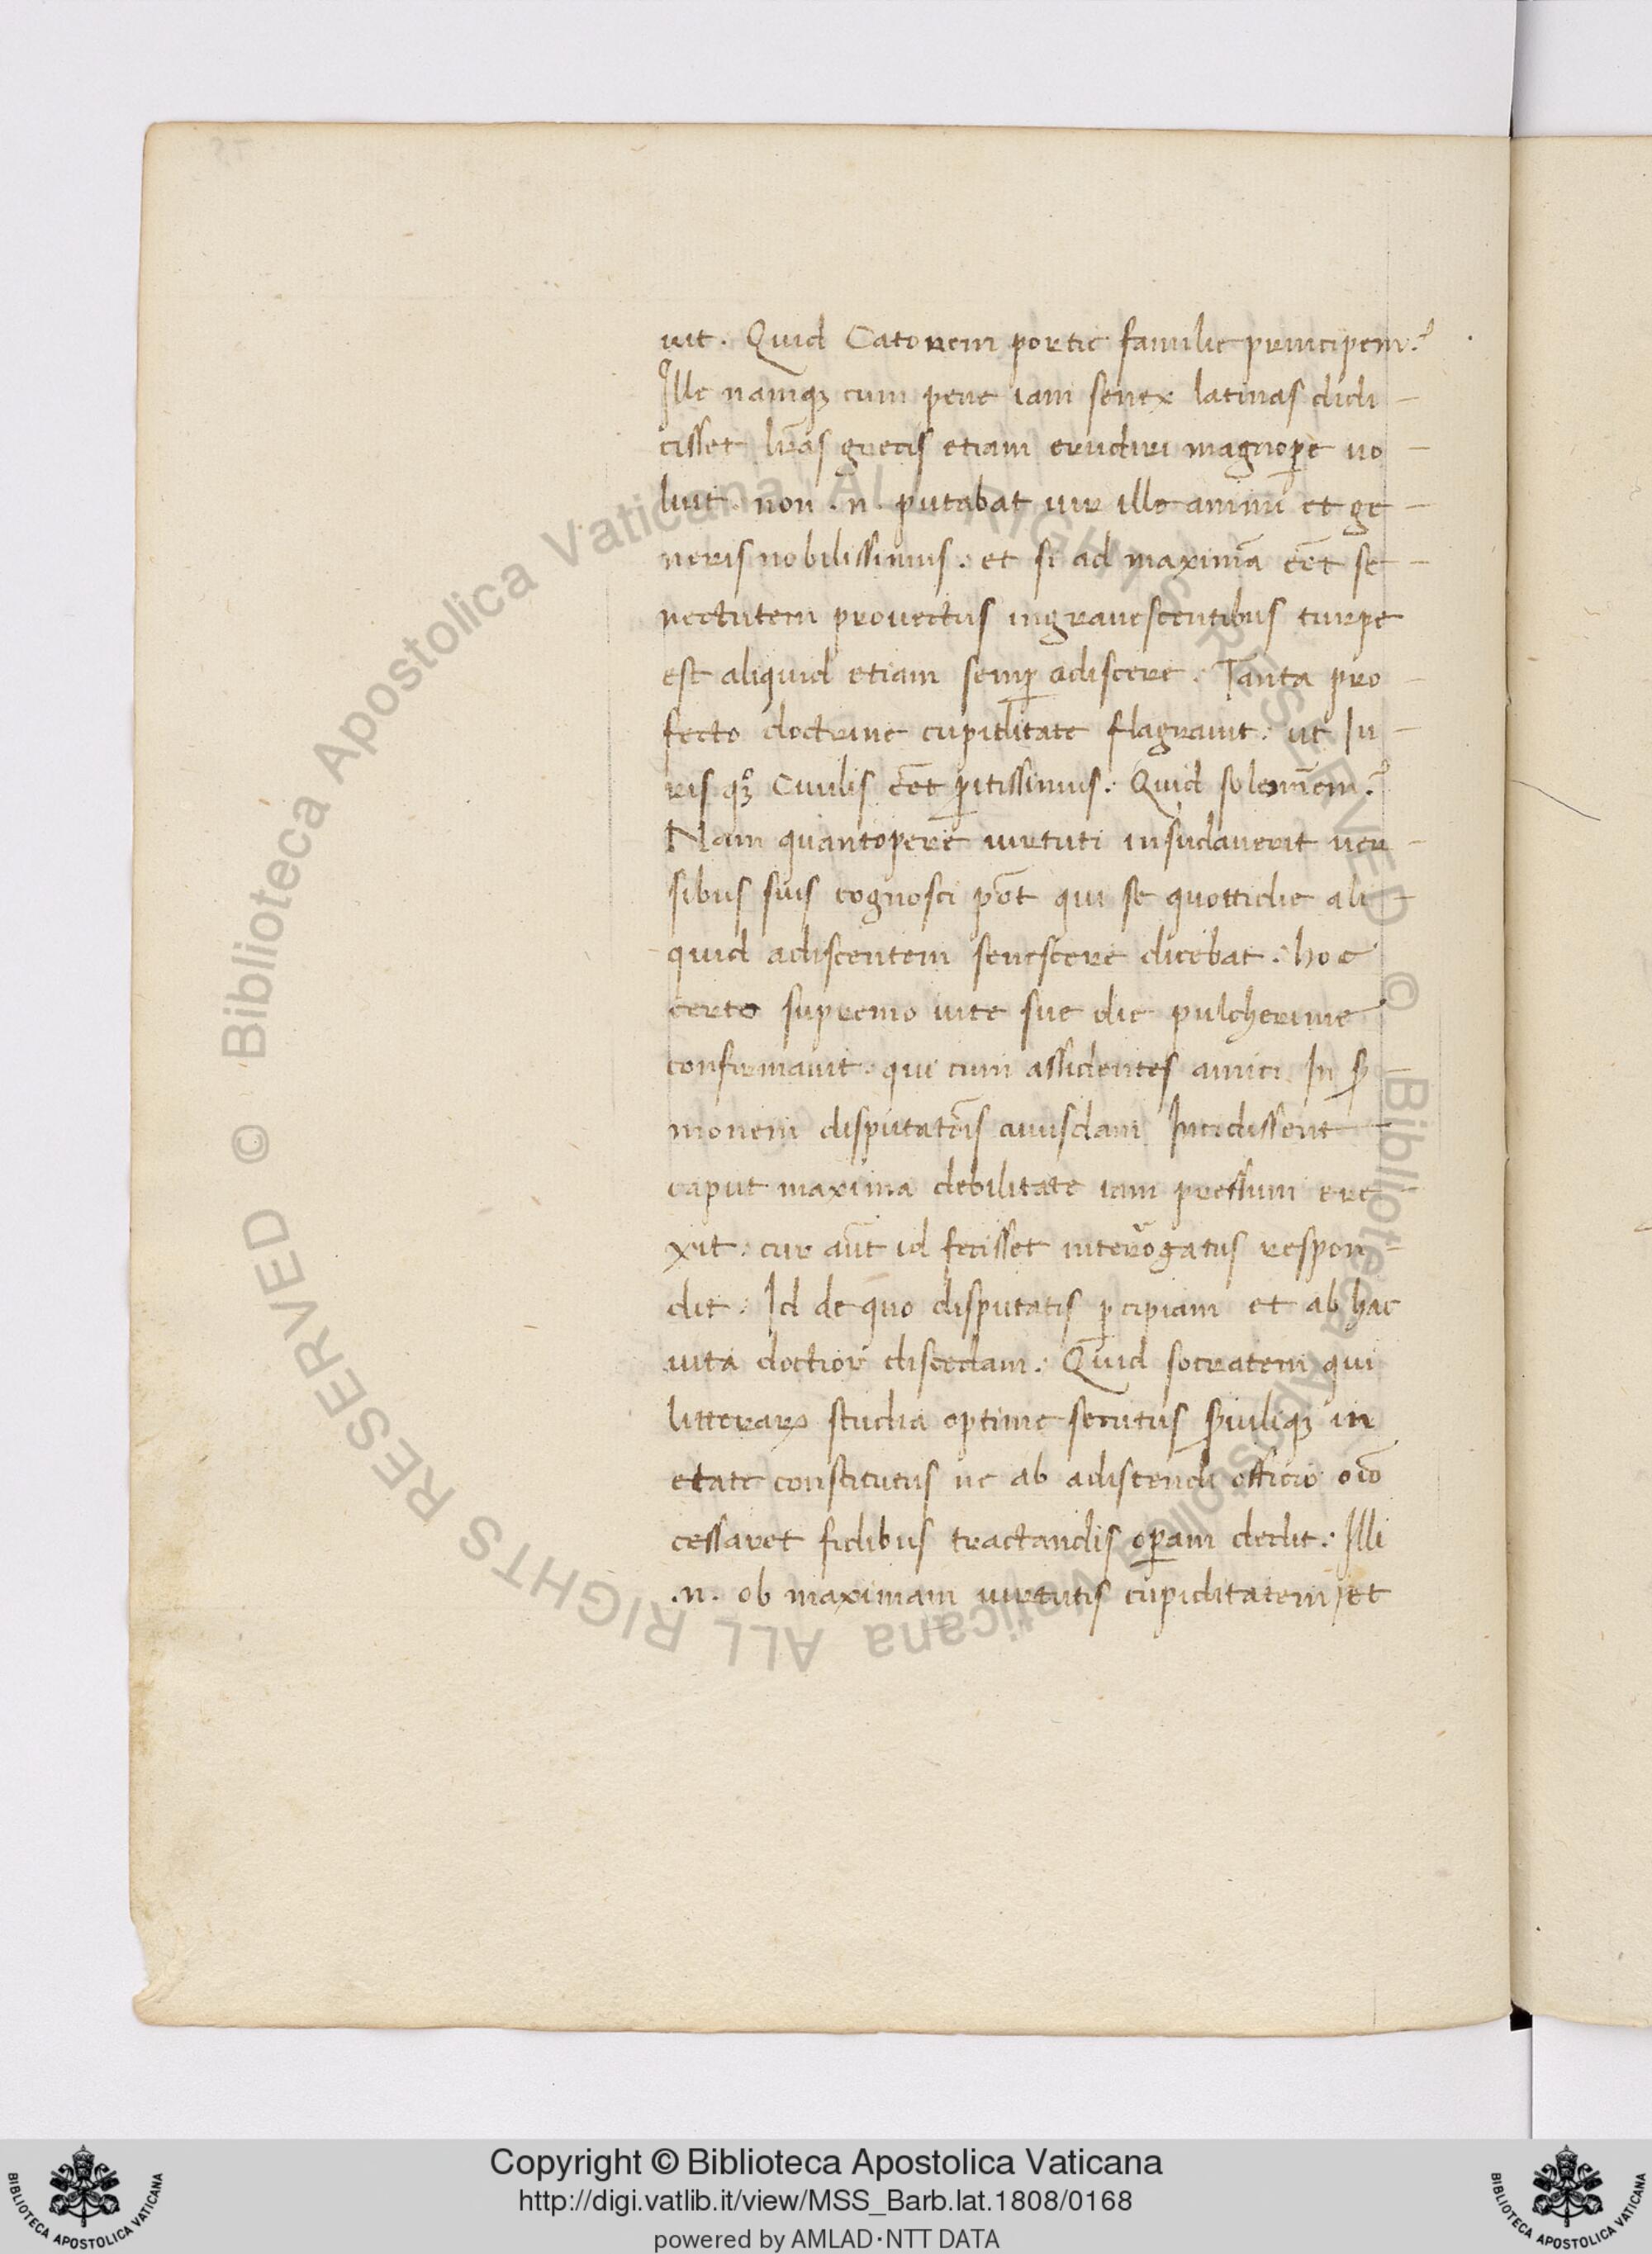 uit. Quid Catonem portie familie principem?
Ille namqꝫ cum pene iam senex latinas didi-
cisset lr̄as grecis etiam erudiri magnoꝑe uo-
luit. non .n. putabat uir ille animi et ge-
neris nobilissimus. et si ad maximā eēt se-
nectutem prouectus ingrauescentibus turpe
est aliquid etiam semꝑ adiscere. Tanta pro-
fecto doctrine cupiditate flagrauit. ut Iu-
ris qꝫ Ciuilis eēt ꝑitissimus. Quid solonem?
Nam quantopere uirtuti insudauerit uer-
sibus suis cognosci pōt qui se quottidie ali-
quid adiscentem senescere dicebat. hoc
certe supremo uite sue die pulcherime
confirmauit. qui cum assidentes amici In ẜ-
monem disputatōis cuiusdam Incidissent
caput maxima debilitate iam pressum ere-
xit. cur aūt id fecisset interrogatus respon-
dit. Id de quo disputatis ꝑcipiam et ab hac
uita doctior discedam. Quid socratem qui
litterarꝝ studia optime secutus ẜiuliqꝫ in
etate constitutus ne ab adiscendi officio oīo
cessaret fidibus tractandis oꝑam dedit. Illi
.n. ob maximam uirtutis cupiditatem et
© Biblioteca Apostolica Vaticana ALL RIGHTS RESERVED © Biblioteca Apostolica Vaticana ALL RIGHTS RESERVED
Copyright © Biblioteca Apostolica Vaticana
http://digi.vatlib.it/view/MSS_Barb.lat.1808/0168
powered by AMLAD·NTT DATA
BIBLIOTECA APOSTOLICA VATICANA
BIBLIOTECA APOSTOLICA VATICANA